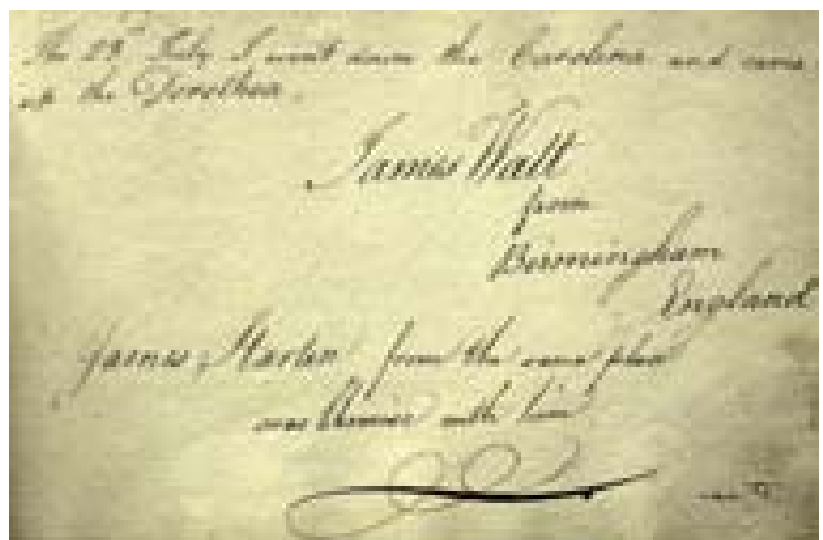 The 23rd July I went down the Carolina and came
up the Dorothea.
James Watt
from
Birmingham
England
James Martin from the same place
was with him